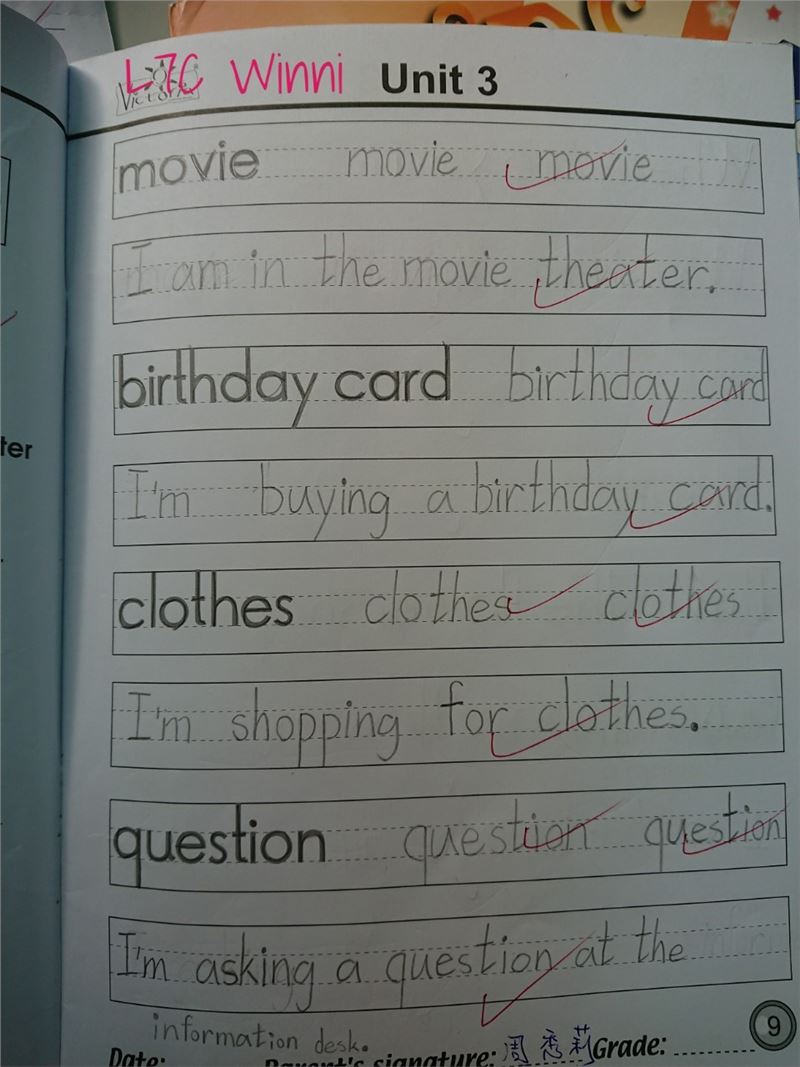 L7C Winni Unit 3
VICTORIA
movie movie movie
I am in the movie theater.
birthday card birthday card
I'm buying a birthday card.
ter
clothes clothes clothes
I'm shopping for clothes.
question question question
I'm asking a question at the
information desk.
9
Date: Parent's signature: 周秀莉 Grade: